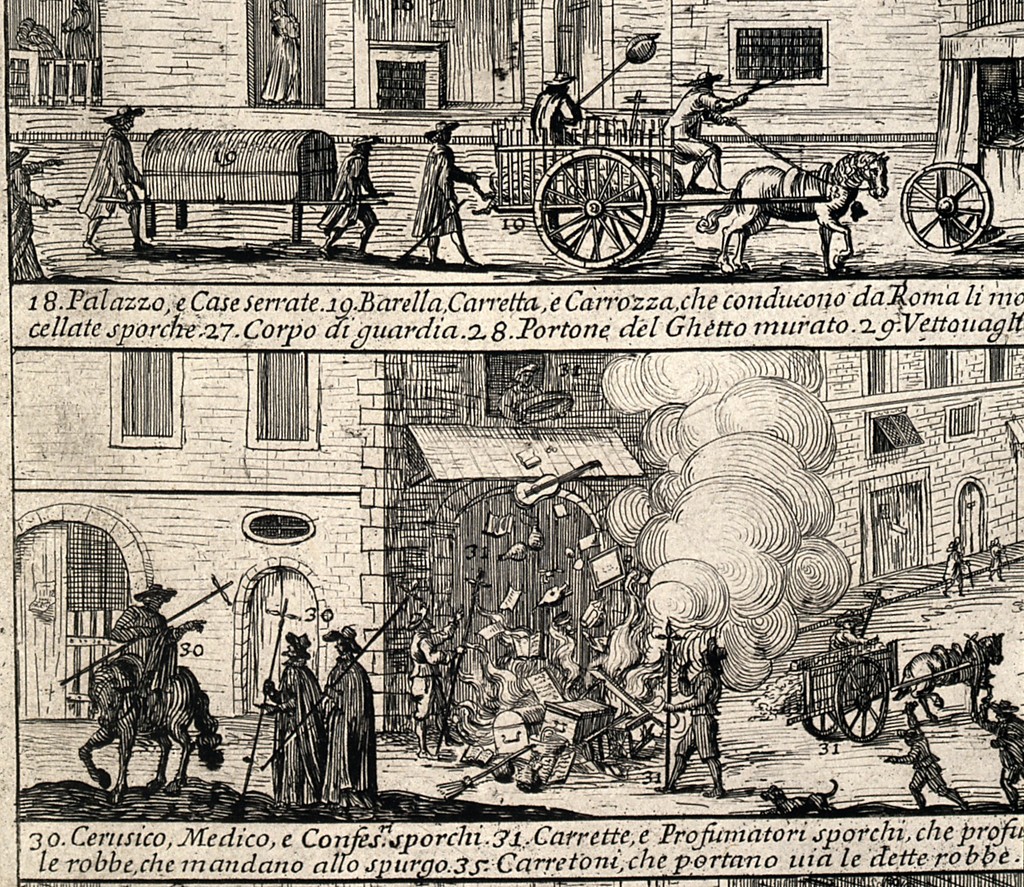 18
19
19
18. Palazzo, e Case serrate. 19. Barella, Carretta, e Carrozza, che conducono da Roma li mo
cellate sporche. 27. Corpo di guardia. 28. Portone del Ghetto murato. 29. Vettouagli
31
31
30
30
31
31
30. Cerusico, Medico, e Confes.ri sporchi. 31. Carrette, e Profumatori sporchi, che profu
le robbe, che mandano allo spurgo. 35. Carretoni, che portano uia le dette robbe.